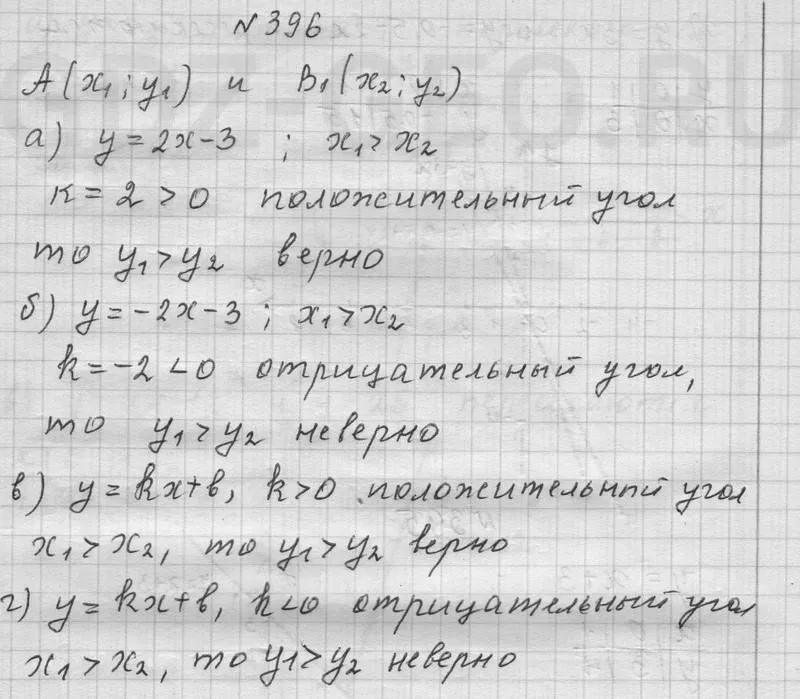 №396
A(x₁; y₁) и B₁(x₂; y₂)
а) y = 2x-3 ; x₁ > x₂
к = 2 > 0 положительный угол
то y₁ > y₂ верно
б) y = -2x-3 ; x₁ > x₂
k = -2 < 0 отрицательный угол,
то y₁ > y₂ неверно
в) y = kx+в, k>0 положительный угол
x₁ > x₂, то y₁ > y₂ верно
г) y = kx+в, k<0 отрицательный угол
x₁ > x₂, то y₁ > y₂ неверно